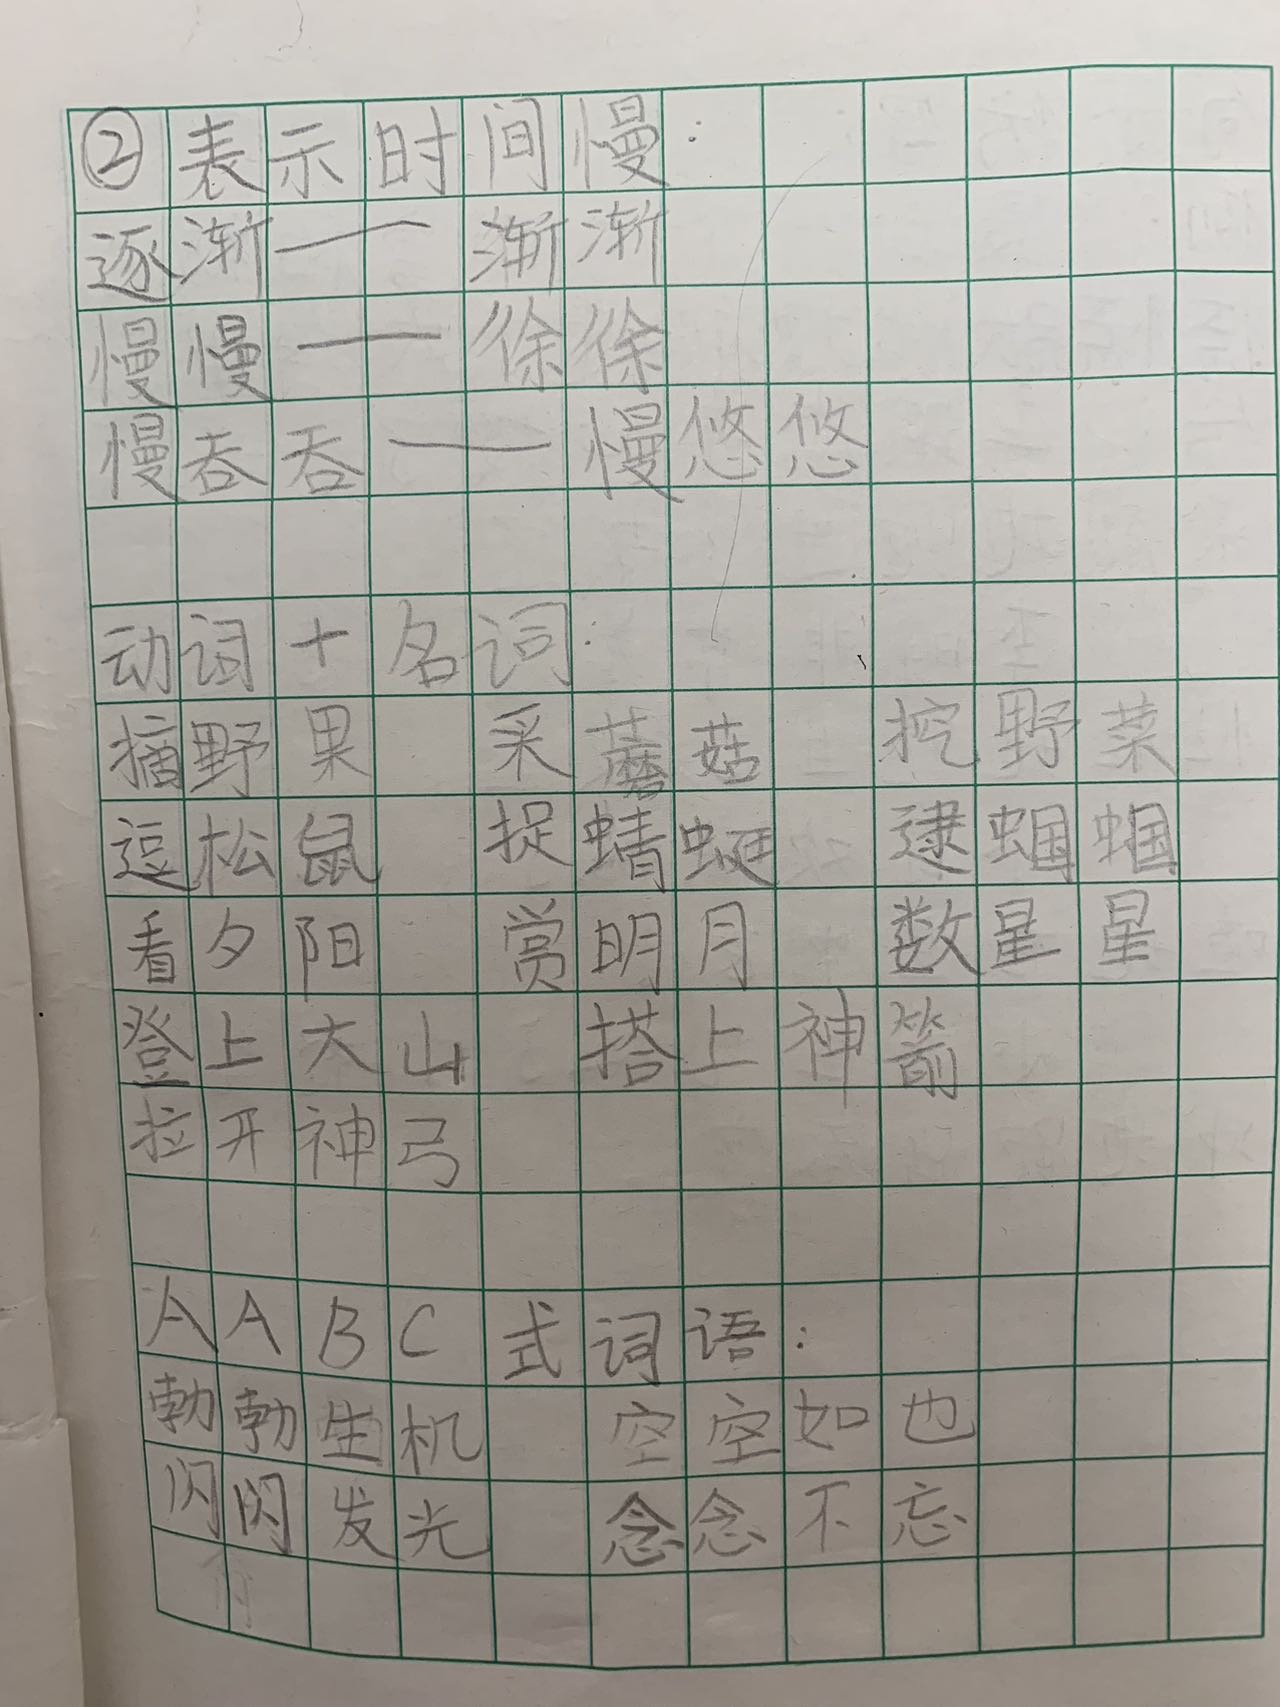 ②表示时间慢:
逐渐——渐渐
慢慢——徐徐
慢吞吞——慢悠悠
动词+名词:
摘野果 采蘑菇 挖野菜
逗松鼠 捉蜻蜓 逮蝈蝈
看夕阳 赏明月 数星星
登上大山 搭上神箭
拉开神弓
AABC式词语:
勃勃生机 空空如也
闪闪发光 念念不忘